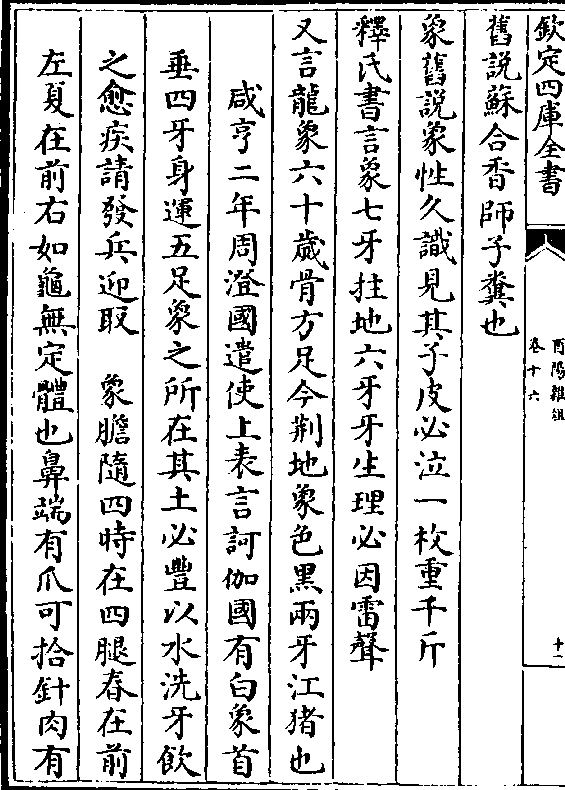 欽定四庫全書
酉陽雜俎
卷十六
十一
舊說蘇合香師子糞也
象舊說象性久識見其子皮必泣一枚重千斤
釋氏書言象七牙拄地六牙牙生理必因雷聲
又言龍象六十歲骨方足今荆地象色黑兩牙江猪也
咸亨二年周澄國遣使上表言訶伽國有白象首
垂四牙身運五足象之所在其土必豐以水洗牙飲
之愈疾請發兵迎取　象膽隨四時在四腿春在前
左夏在前右如龜無定體也鼻端有爪可拾針肉有